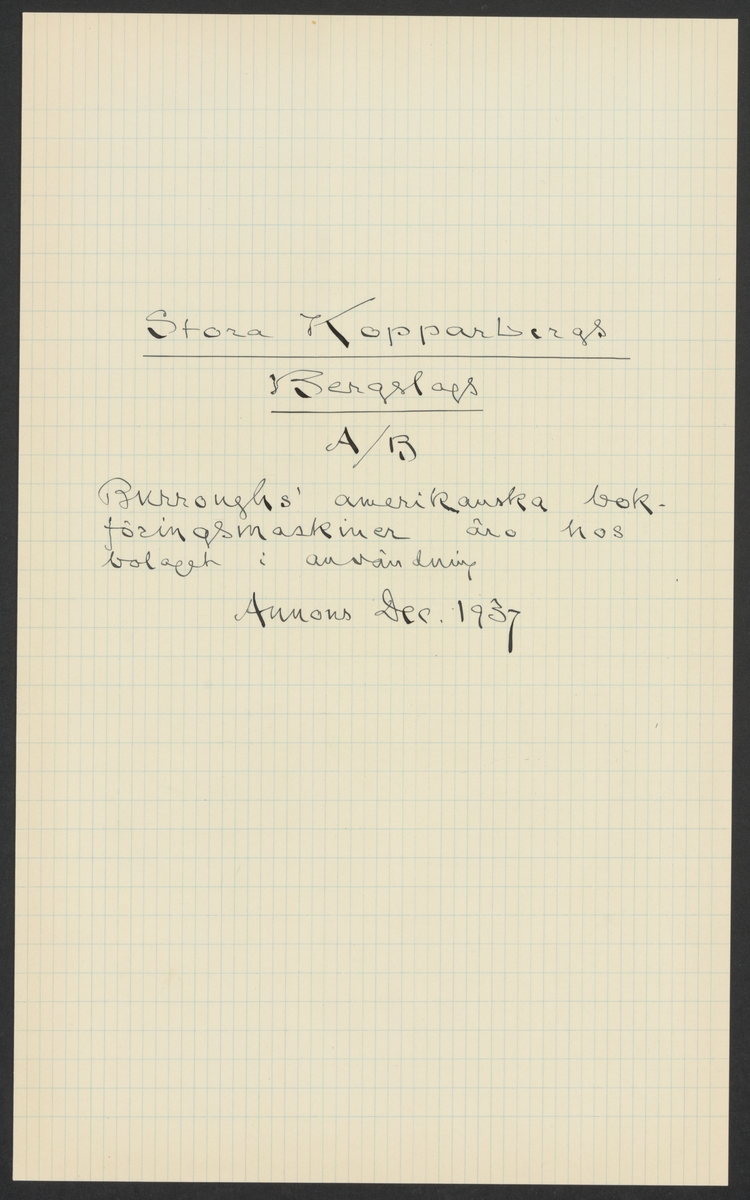 Stora Kopparbergs
Bergslags
A/B
Burroughs' amerikanska bok-
föringsmaskiner äro hos
bolaget i användning
Annons Dec. 1937